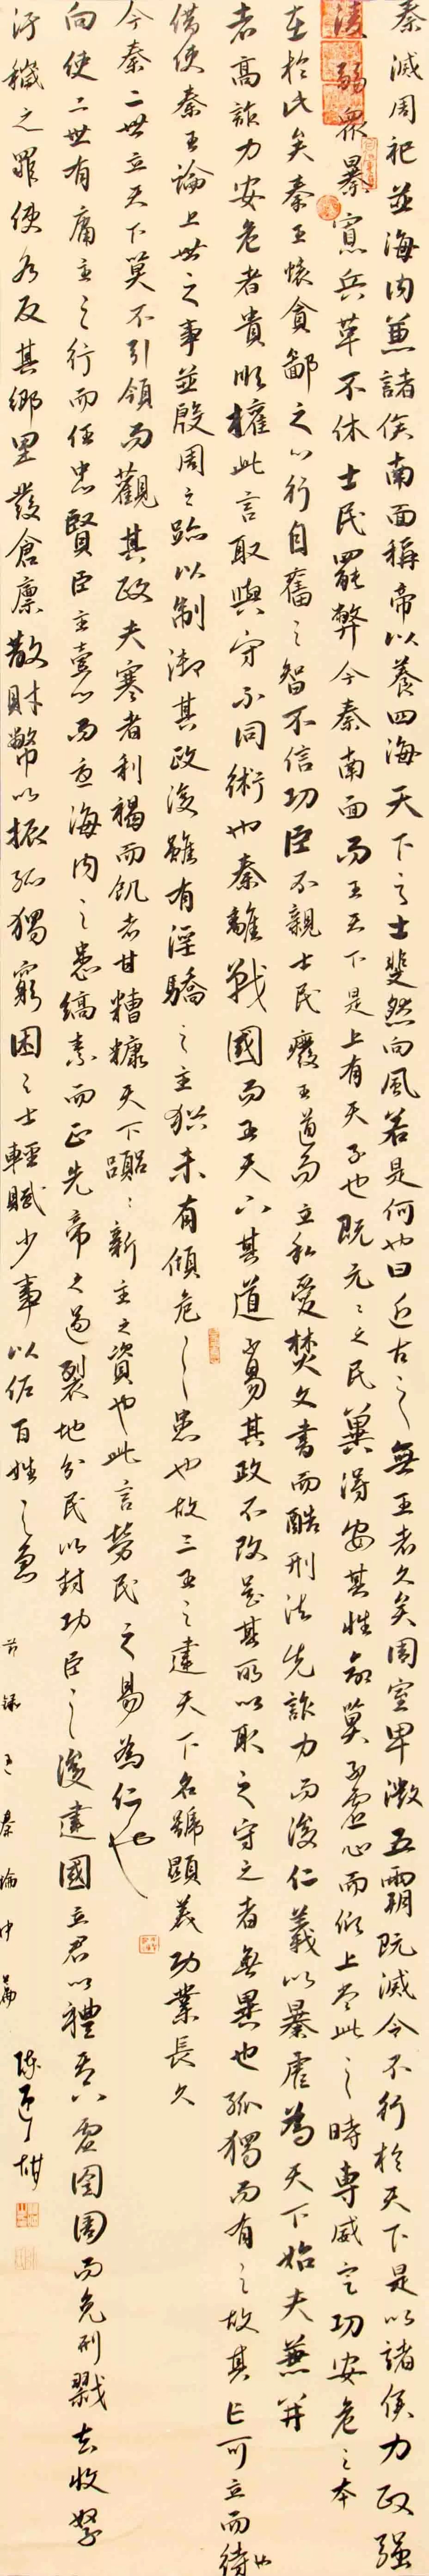 秦滅周祀並海內兼諸侯南面稱帝以養四海天下之士斐然向風若是何也曰近古之無王者久矣周室卑微五霸既滅令不行於天下是以諸侯力政強
凌弱眾暴寡兵革不休士民罷弊今秦南面而王天下是上有天子也既元元之民冀得安其性命莫不虛心而仰上當此之時專威定功安危之本
在於此矣秦王懷貪鄙之心行自奮之智不信功臣不親士民廢王道而立私愛焚文書而酷刑法先詐力而後仁義以暴虐為天下始夫兼并
者高詐力安危者貴順權此言取與守不同術也秦離戰國而王天下其道不易其政不改是其所以取之守之者無異也孤獨而有之故其亡可立而待也
借使秦王論上世之事並殷周之跡以制御其政後雖有淫驕之主猶未有傾危之患也故三王之建天下名號顯美功業長久
今秦二世立天下莫不引領而觀其政夫寒者利裋褐而飢者甘糟糠天下囂囂新主之資也此言勞民之易為仁也
向使二世有庸主之行而任忠賢臣主一心而憂海內之患縞素而正先帝之過裂地分民以封功臣之後建國立君以禮天下虛囹圄而免刑戮去收孥
汙穢之罪使各反其鄉里發倉廩散財幣以振孤獨窮困之士輕賦少事以佐百姓之急
節錄過秦論中篇